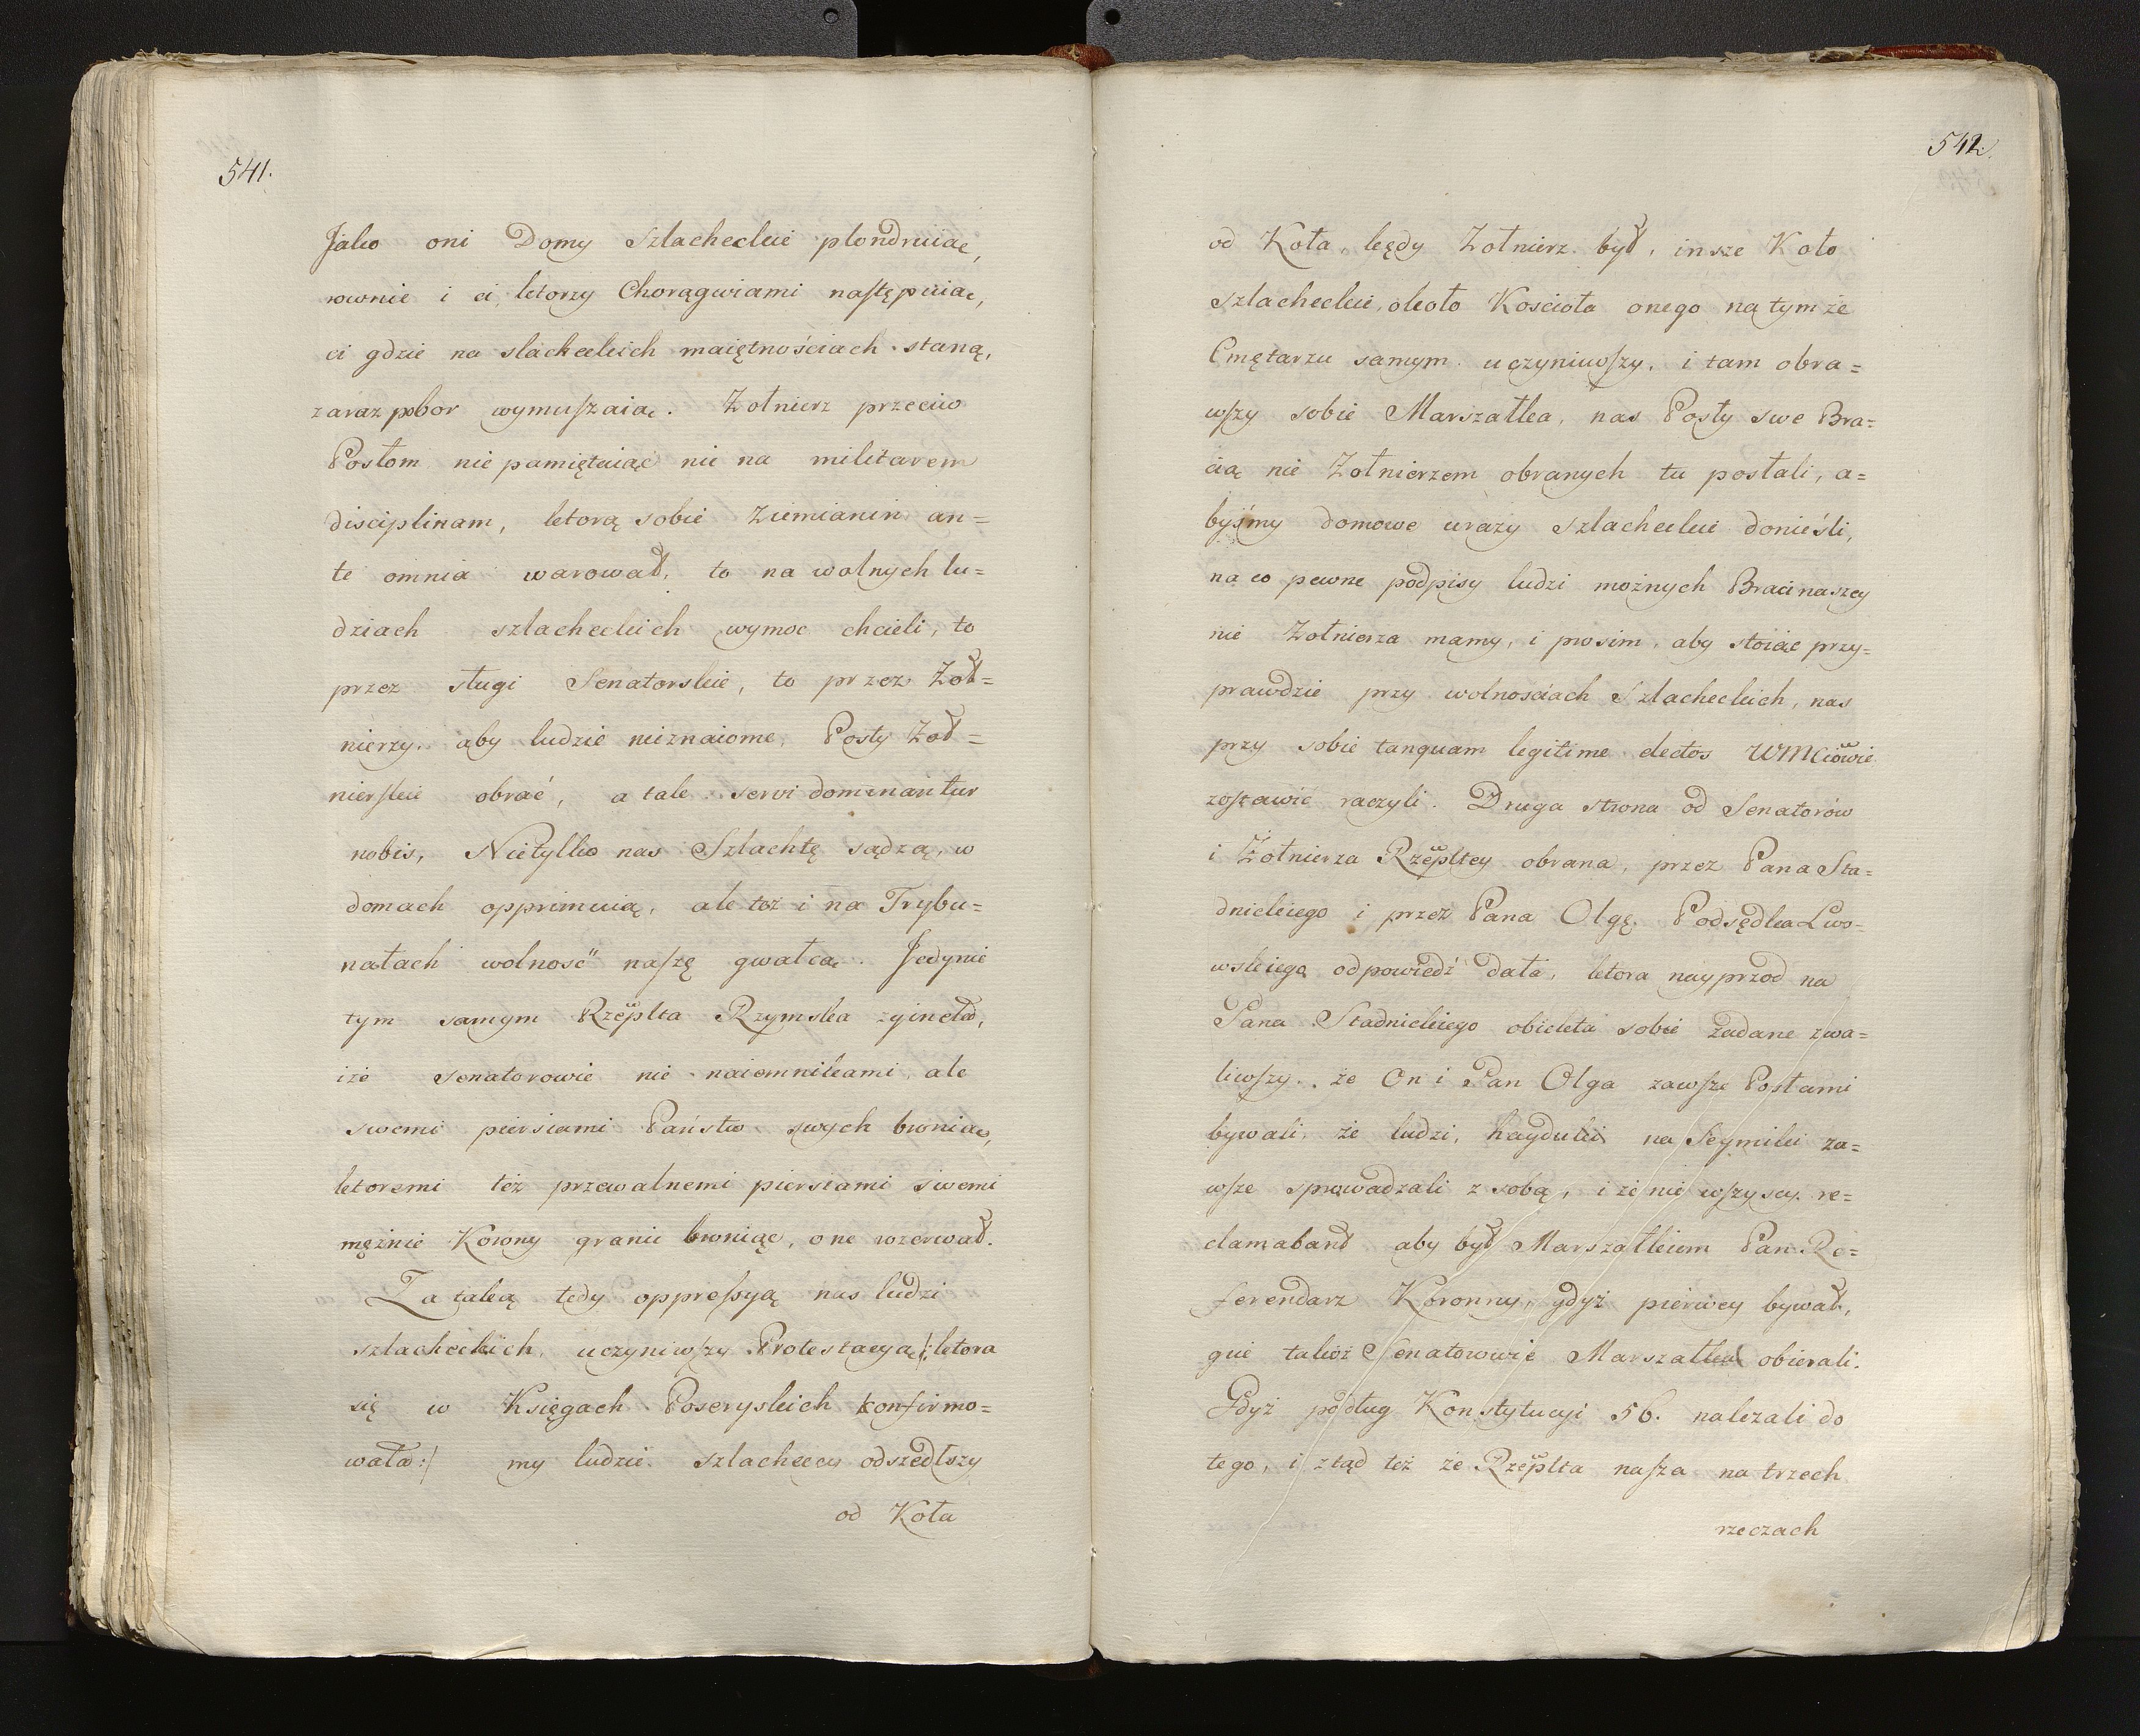 541.
Jako oni Domy Szlacheckie plondruiąc,
rownie i ci, ktorzy Chorągwiami następuiąc,
ci gdzie na slacheckich maiętnościach staną,
zaraz pobor wymuszaiąc. Zołnierz przeciw
Posłom nie pamiętaiąc nic na militarem
disciplinam, ktorą sobie Ziemianin an=
te omnia warował, to na wolnych lu=
dziach szlacheckich wymoc chcieli, to
przez sługi Senatorskie, to przez Zoł=
nierzy, aby ludzie nieznaiome, Posły Zoł=
nierskie obrać, a tak servi dominantur
nobis, Nietylko nas Szlachtę sądzą, w
domach opprimuią, ale też i na Trybu=
nałach wolność naszę gwałcą. Jedynie
tym samym Rzeplta Rzymska zgineła,
iże Senatorowie nie naiemnikami, ale
swemi piersiami Państw swych broniąc,
ktoremi też przewalnemi piersiami swemi
mężnie Korony granic broniąc, one rozerwał.
Za taką tedy oppressyą nas ludzi
szlacheckich, uczyniwszy Protestacyą /: ktora
się w Księgach Poseryskich konfirmo=
wała :/ my ludzie szlacheccy odszedłszy
od Koła
542.
od Koła, kędy Zołnierz był, insze Koło
szlacheckie, około Kościoła onego na tymże
Cmętarzu samym uczyniwszy, i tam obra=
wszy sobie Marszałka, nas Posły swe Bra=
cią nie Zołnierzem obranych tu posłali, a=
byśmy domowe urazy szlacheckie donieśli,
na co pewne podpisy ludzi możnych Braci naszey
nie Zołnierza mamy, i prosim, aby stoiąc przy=
prawdzie przy wolnościach Szlacheckich, nas
przy sobie tanquam legitime electos WMciowie
zostawić raczyli. Druga strona od Senatorów
i Żołnierza Rzepltey obrana, przez Pana Sta=
dnickiego i przez Pana Olgę Podsędka Lwo=
wskiego odpowiedź dała, ktora nayprzod na
Pana Stadnickiego obiekta sobie zadane zwa=
liwszy, że On i Pan Olga zawsze Posłami
bywali, że ludzi, hayduki na Seymiki za=
wsze sprowadzali z sobą, i że nie wszyscy re=
clamabant aby był Marszałkiem Pan Re=
ferendarz Koronny, gdyż pierwey bywał,
gdie takoż Senatorowie Marszałka obierali.
Gdyż podług Konstytucyi 56. nalezali do
tego, i ztąd też że Rzeplta nasza na trzech
rzeczach